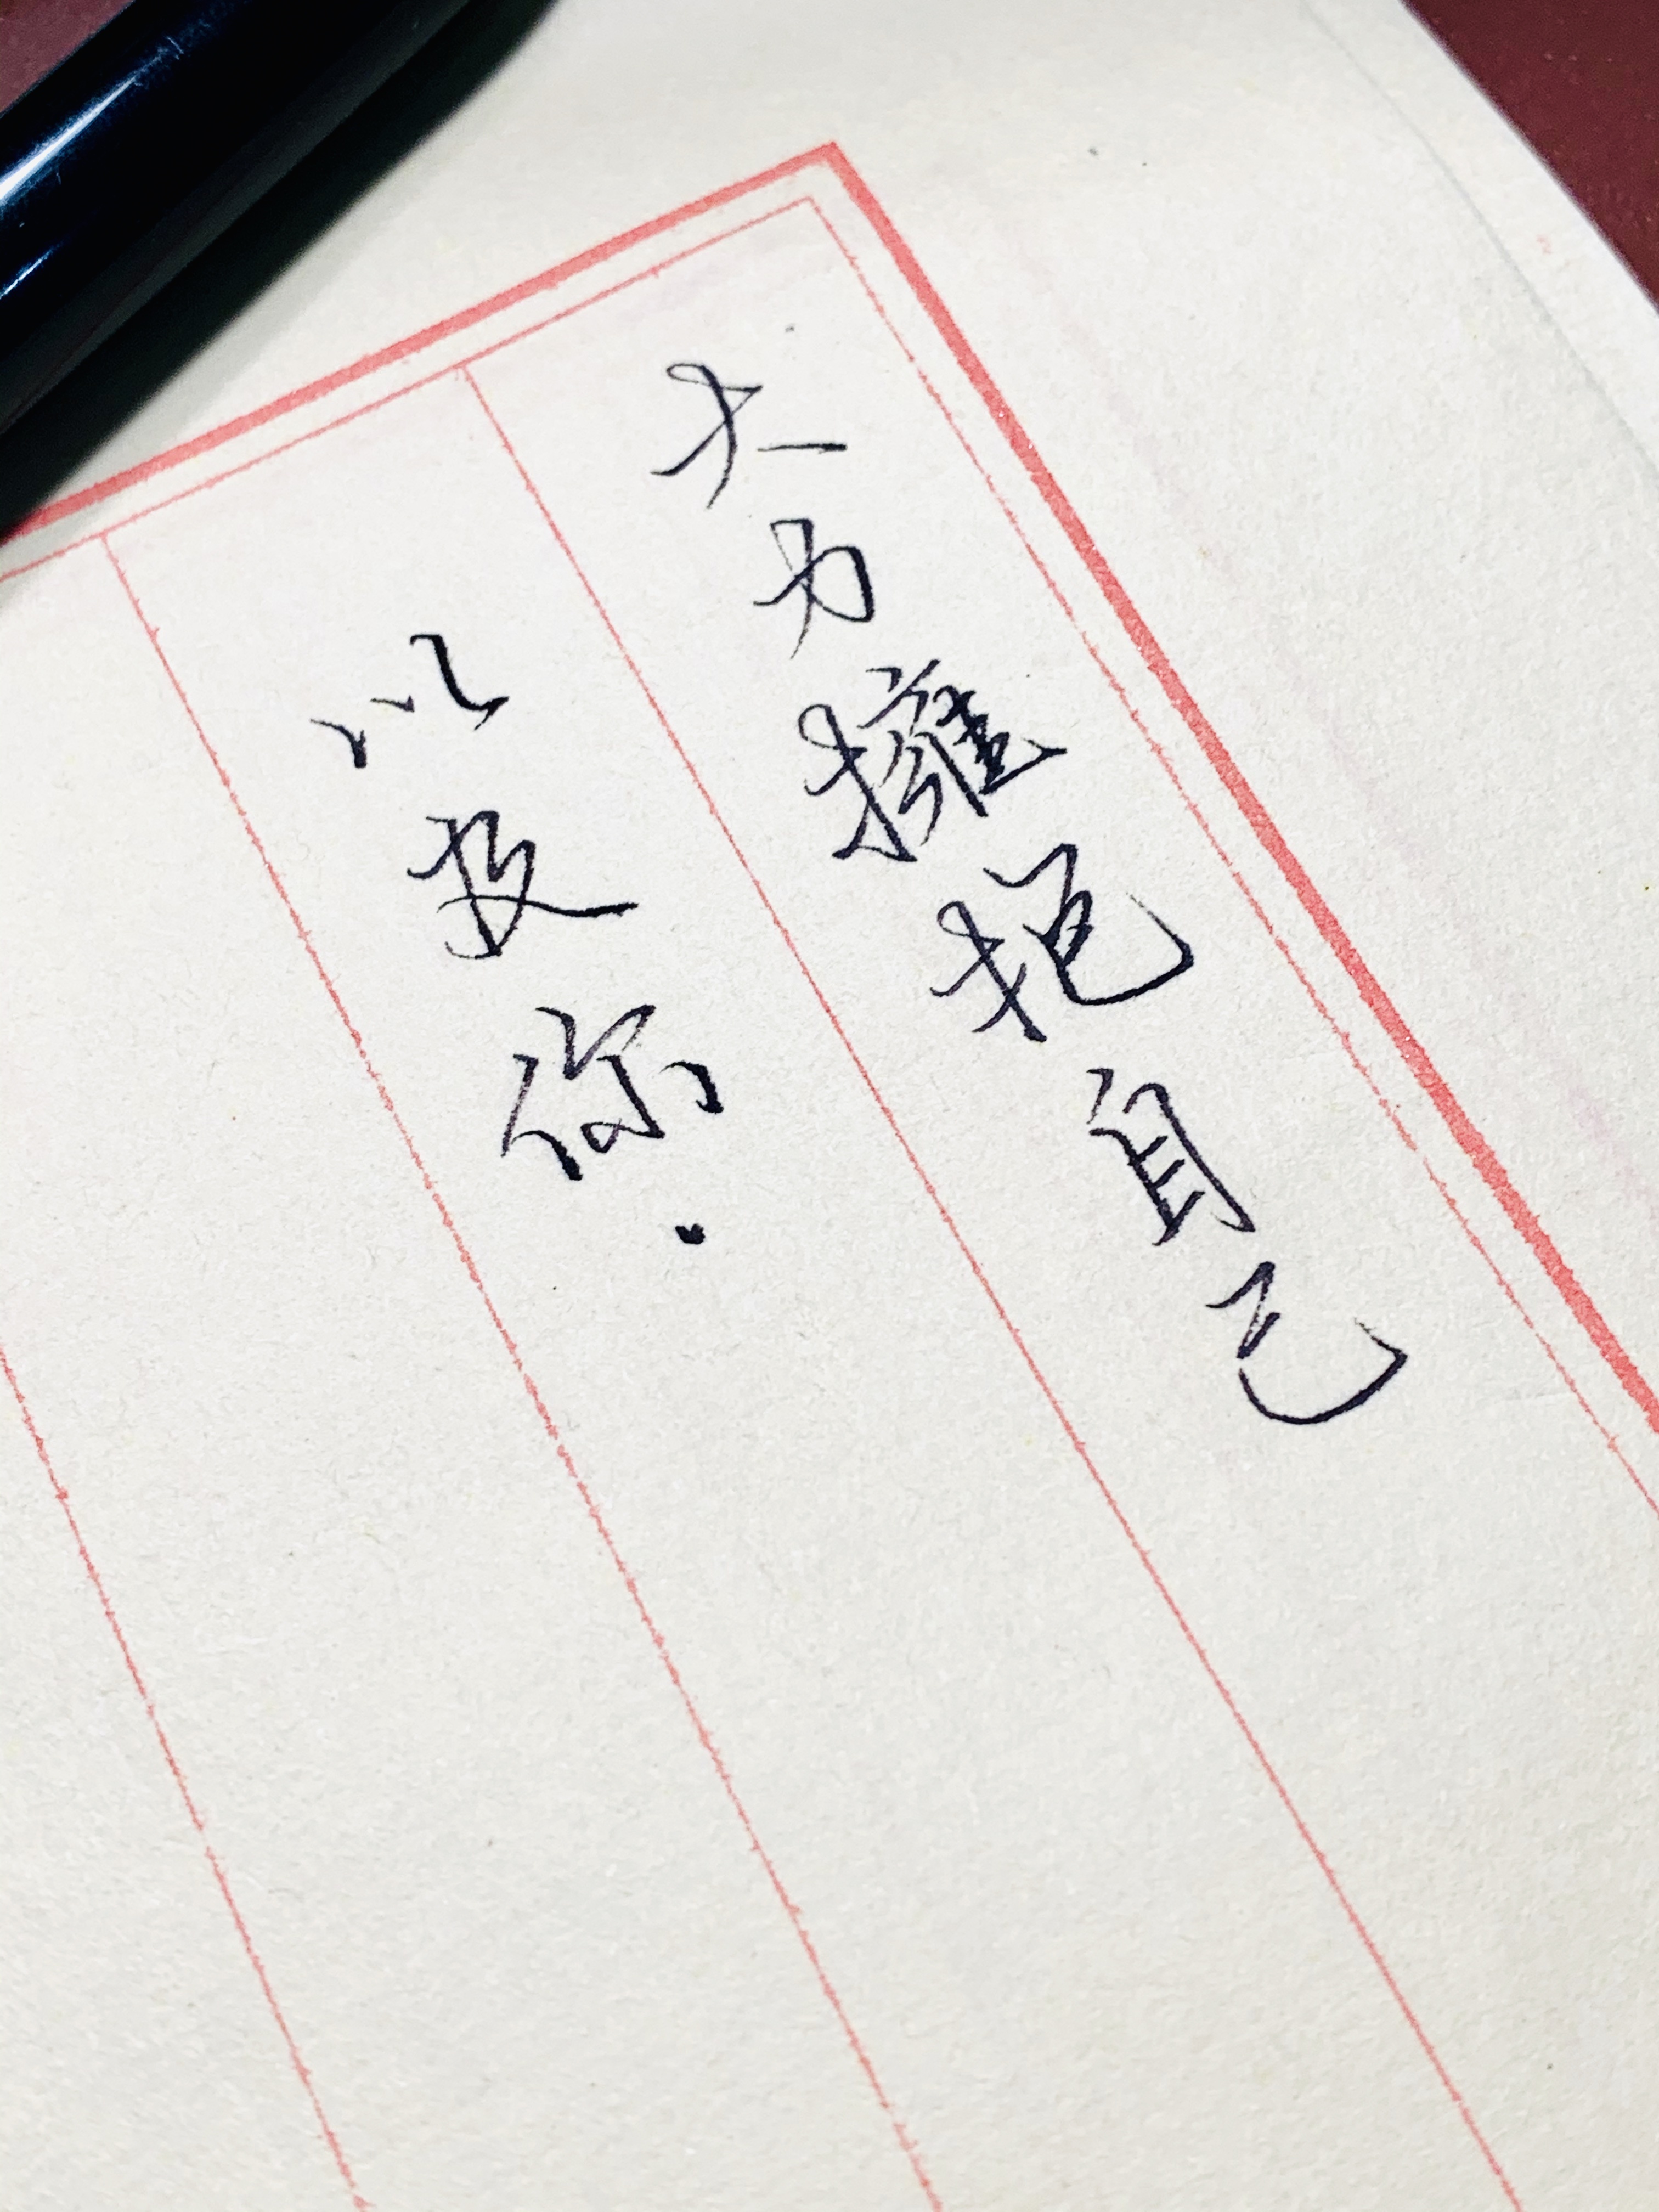 大力擁抱自己
以及你.